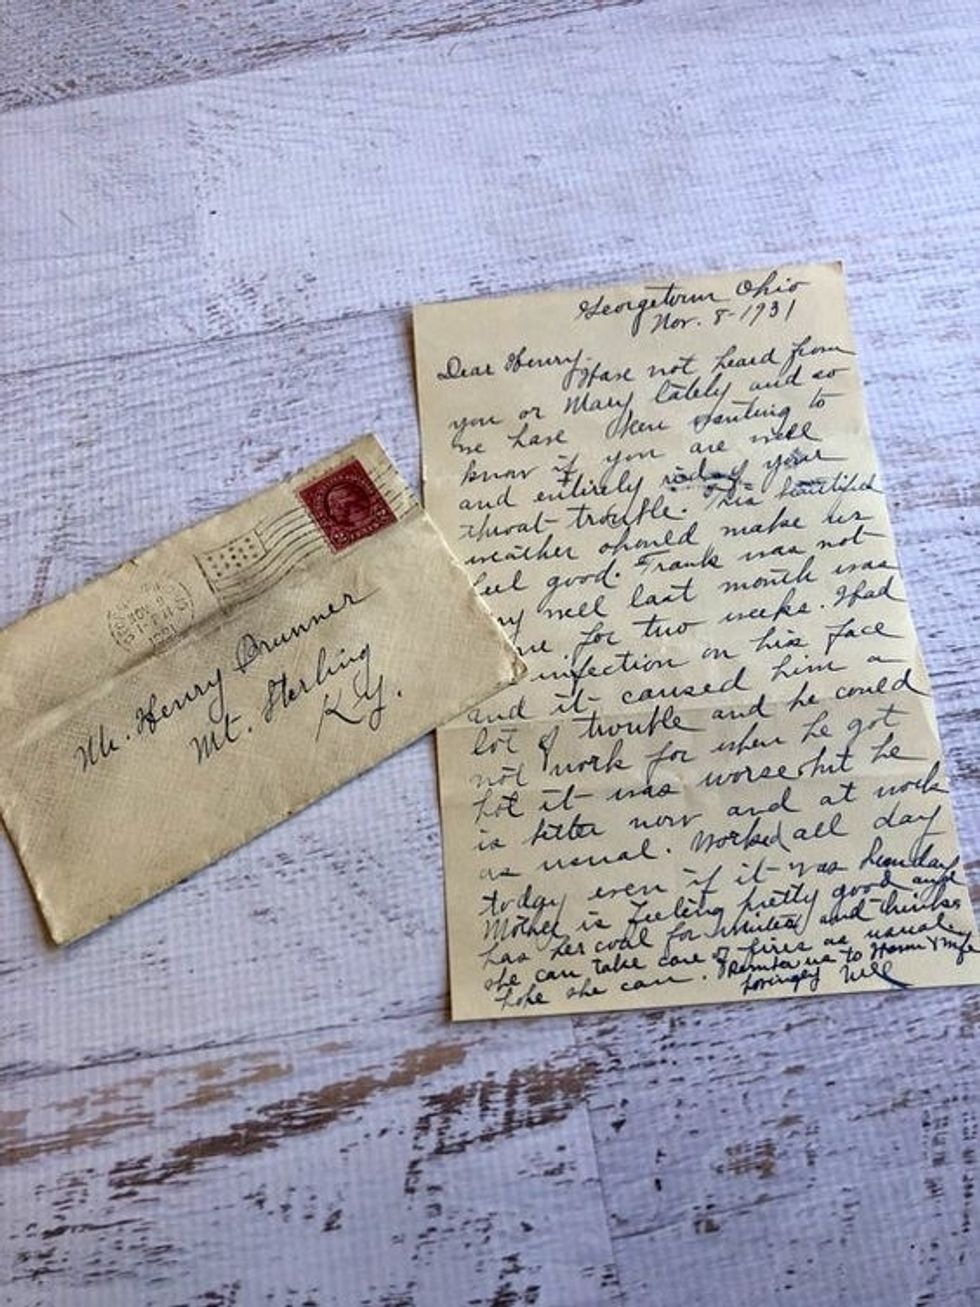 Georgetown Ohio
Nov. 8-1931
Dear Henry.
Have not heard from
you or Mary lately and so
we have been wanting to
know if you are well
and entirely your
throat trouble. This beautiful
weather should make us
feel good. Frank was not
well last month was
for two weeks. Had
infection on his face
and it caused him a
lot of trouble and he could
not work for when he got
hot it was worse but he
is better now and at work
as usual. Worked all day
today even if it was Sunday
Mother is feeling pretty good and
has her coal for winter and thinks
she can take care of fires as usual
hope she can. Remember us to
Lovingly Will
Mr. Henry Prunner
Mt. Sterling
Ky.
NOV
1931